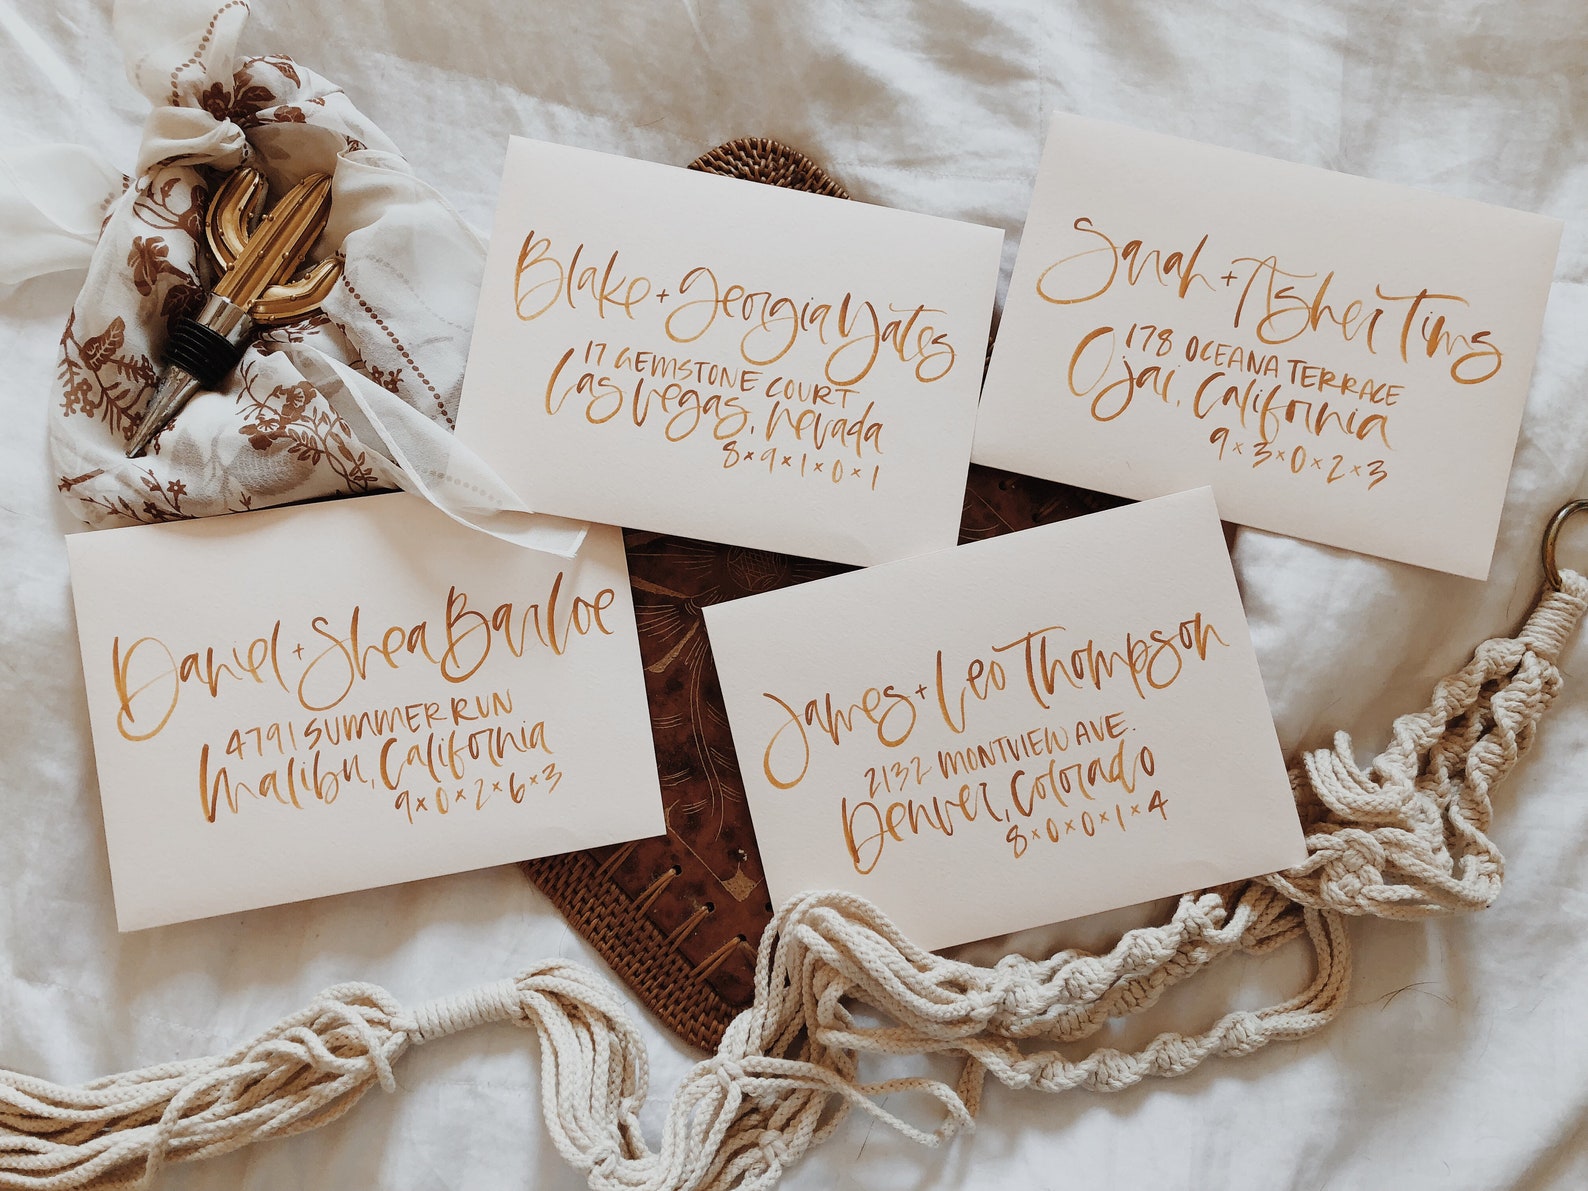 Blake + Georgia Yates
17 GEMSTONE COURT
Las Vegas, Nevada
8×9×1×0×1
Sarah + Asher Tims
178 OCEANA TERRACE
Ojai, California
9×3×0×2×3
Daniel + Shea Barloe
4791 SUMMER RUN
Malibu, California
9×0×2×6×3
James + Leo Thompson
2132 MONTVIEW AVE.
Denver, Colorado
8×0×0×1×4